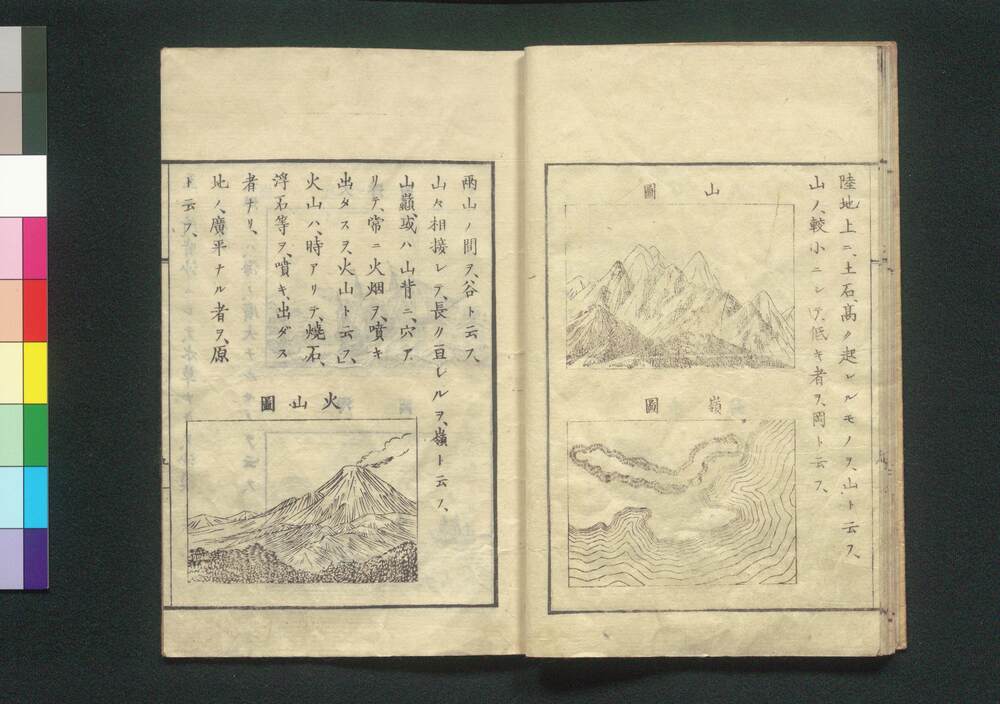 陸地上ニ、土石、高ク起レルモノヲ、山ト云フ、
山ノ、較小ニシテ、低キ者ヲ、岡ト云フ、
山圖
嶺圖
兩山ノ間ヲ、谷ト云フ、
山々相接シテ、長ク亘レルヲ、嶺ト云フ、
山巓、或ハ山背ニ、穴ア
リテ、常ニ火烟ヲ、噴キ
出タスヲ、火山ト云フ、
火山ハ、時アリテ、燒石、
浮石等ヲ、噴キ、出ダス
者ナリ、
地ノ、廣平ナル者ヲ、原
ト云フ、
火山圖